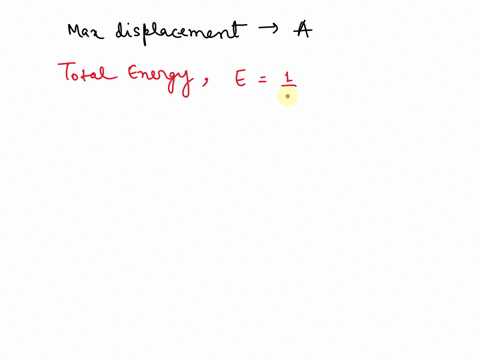 Max displacement → A
Total Energy, E = 1